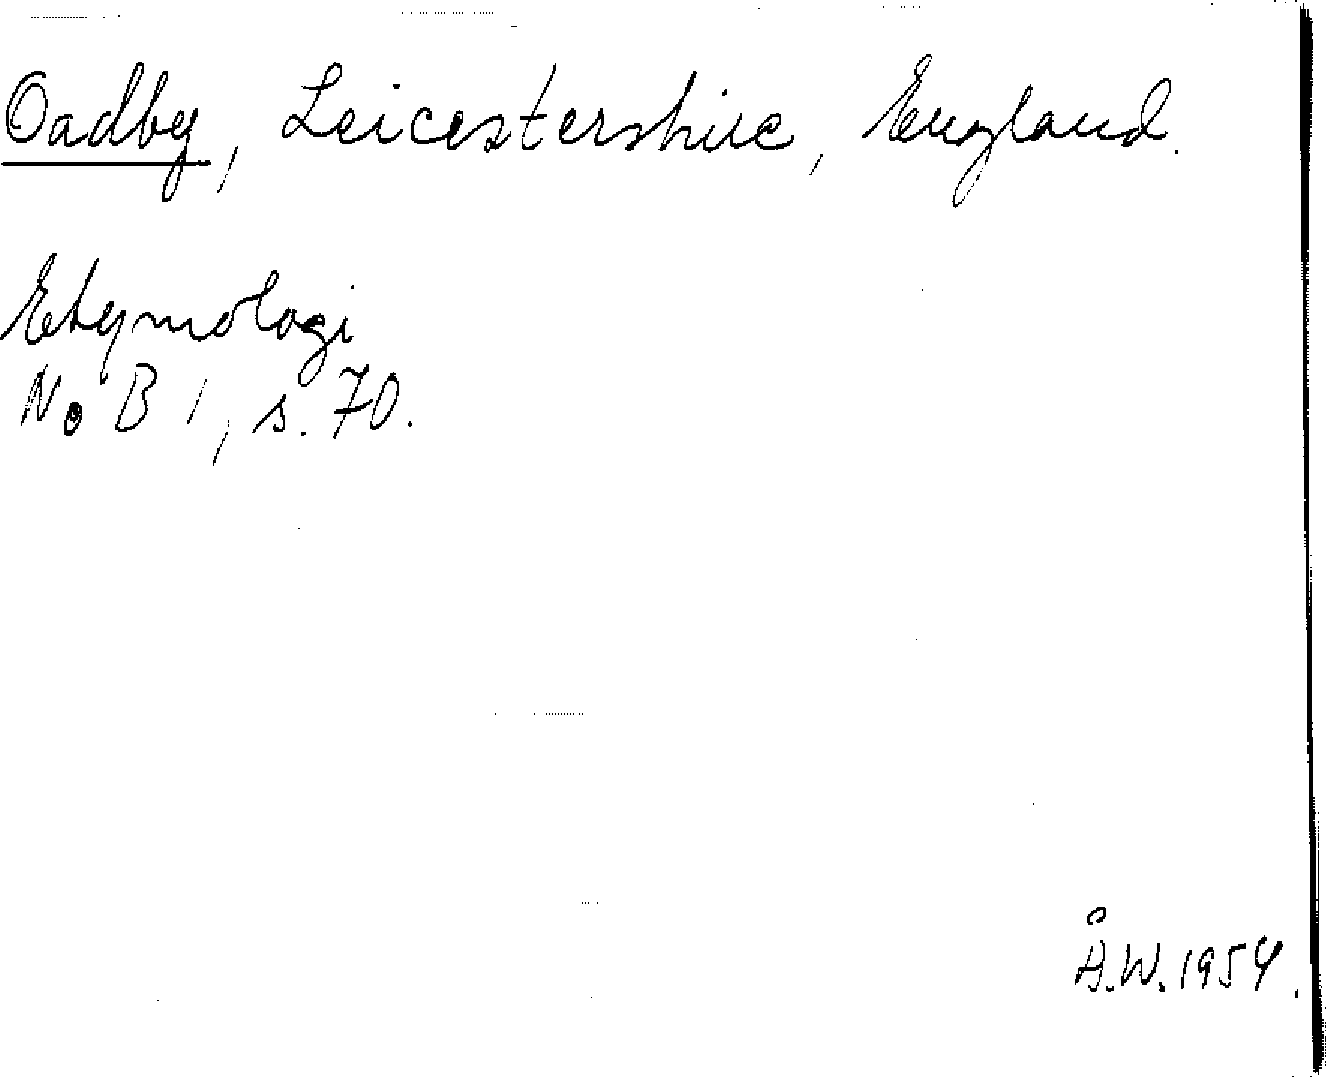 Oadby, Leicestershire, England.
Etymologi
NoB 1, s. 70.
Å.W. 1954.